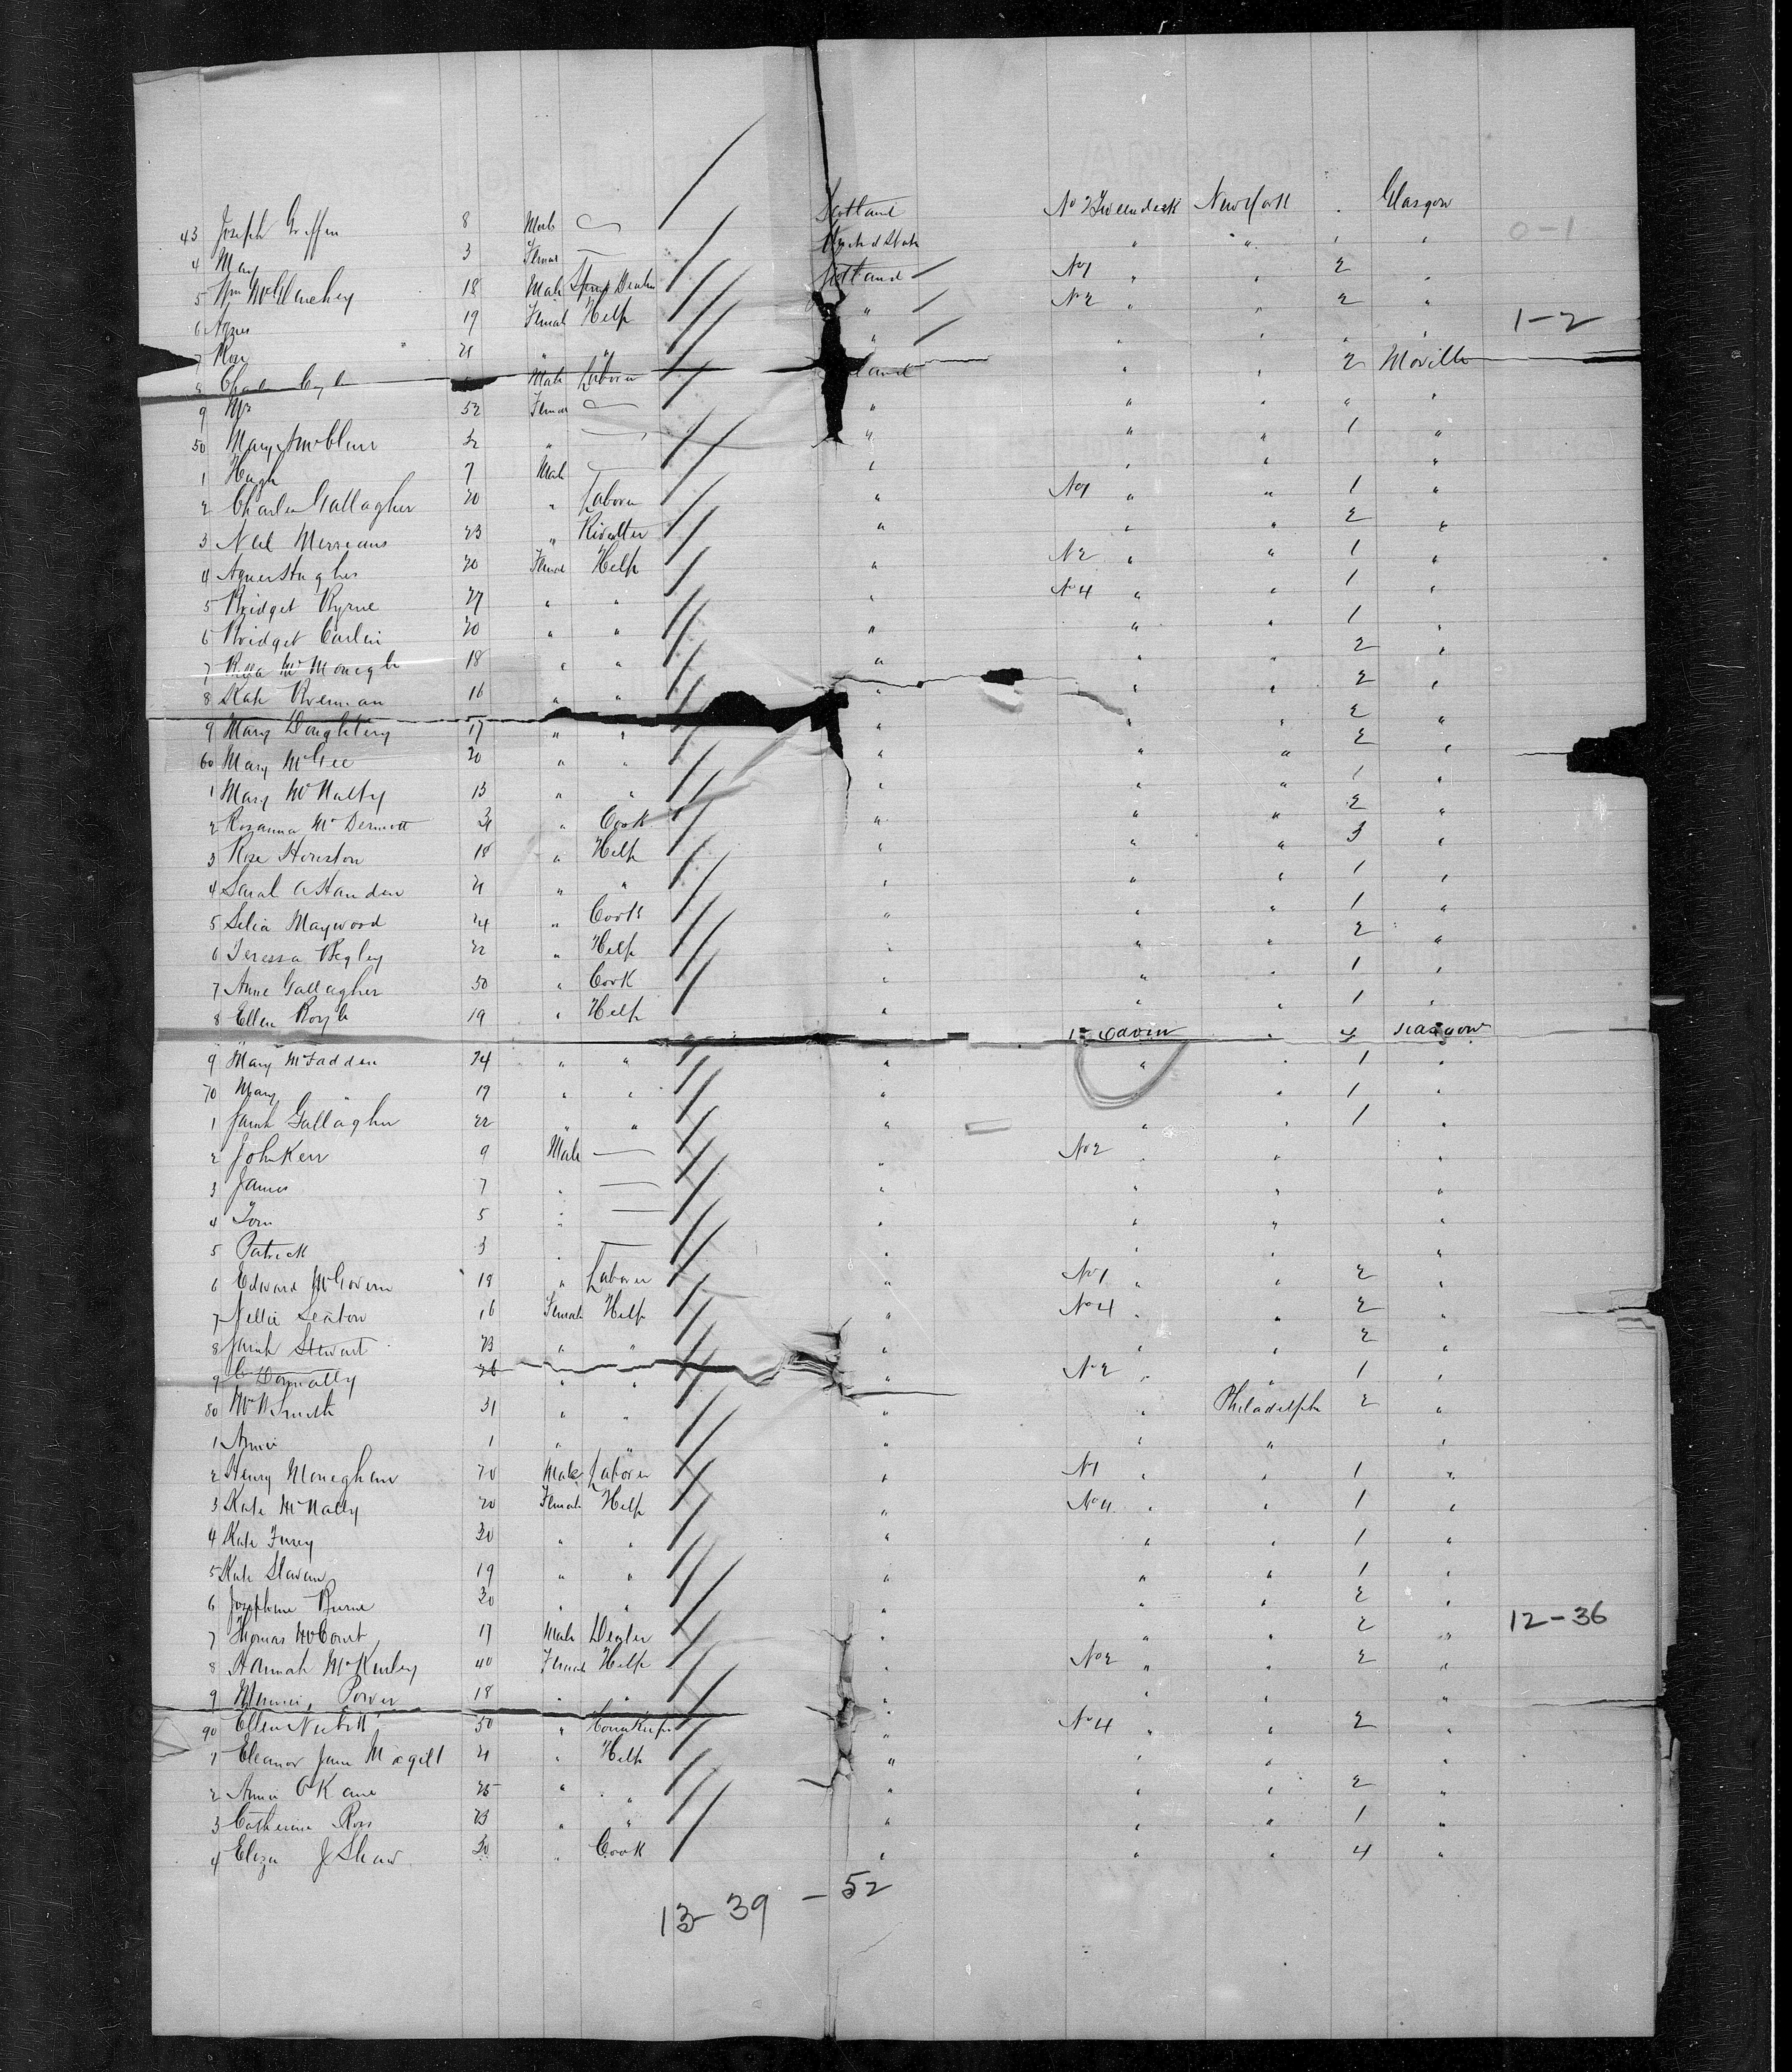 43 Joseph Griffin 8 Male Scotland No 2 Tweendeck New York . Glasgow
0-1
4 Mary 3 Femal United State " " " "
5 Wm 18 Male Scotland No 1 " " 2 "
6 Agnes 19 Female Help " No 2 " " 2 "
1-2
7 Rose 21 " " " " " " "
8 Male Laborer " " 2 Moville
9 Mrs 52 Femal " " " " "
50 Mary A 32 " " " " 1 "
1 Hugh 7 Male " " " "
2 Charles Gallagher 20 " Laborer " No 1 " " 1 "
3 Neil 23 " " " " 2 "
4 Agnes Hughes 20 Femal Help " N 2 " " 1 "
5 Bridget Byrne 27 " " " No 4 " " 1 "
6 Bridget Carlin 20 " " " " " 1 "
7 Bella McMonegle 18 " " " " " 2 "
8 Kate 16 " " " " " 2 "
9 Mary Doughtery 17 " " " " " 2 "
60 Mary McGee 20 " " " " " 2 "
1 Mary McNalty 13 " " " " " 1 "
2 Rosanna McDermott 31 " Cook " " " 2 "
3 Rose Houston 18 " Help " " " 3 "
4 Sarah A 21 " " " " " 1 "
5 Selia Maywood 24 " Cook " " " 1 "
6 Teressa Begley 22 " Help " " " 2 "
7 Anne Gallagher 50 " Cook " " " 1 "
8 Ellen Boyle 19 " Help " " " 1 "
1st Cabin " 4 Glasgow
9 Mary McFadden 24 " " " " " 1 "
70 Mary " 19 " " " " " 1 "
1 Sarah Gallagher 22 " " " " " 1 "
2 John Kerr 9 Male " No 2 " " "
3 James 7 " " " " "
4 Tom 5 " " " " "
5 Patrick 3 " " " " "
6 Edward McGovern 19 " Laborer " No 1 " " 2 "
7 Nellie Seaton 16 Female Help " No 4 " " 2 "
8 Sarah Stewart 23 " " " " " 2 "
9 C Donnally 26 " " " No 2 " " 1 "
80 Smith 31 " " " " Philadelph 2 "
1 Annie 1 " " " " " "
2 Henry Moneghan 20 Male Laborer " N 1 " " 1 "
3 Kate McNally 20 Female Help " No 4 " " 1 "
4 Kate Furey 30 " " " " " 1 "
5 Kate Slavan 19 " " " " " 1 "
6 Josephine Burns 30 " " " " " 2 "
7 Thomas McCourt 17 Male Dealer " " " 2 "
12-36
8 Hannah McKinley 40 Female Help " No 2 " " 2 "
9 Minnie Power 18 " " " " "
90 Ellen Nesbitt 50 " " No 4 " " 2 "
1 Eleanor Jane Magill 21 " Help " " " "
2 Annie O'Kane 25 " " " " " 2 "
3 Catherine Ross 23 " " " " " 1 "
4 Eliza J Shaw 30 " Cook " " " 4 "
13-39-52